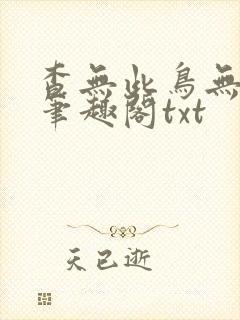 查無此鳥無
筆趣閣txt
天已逝